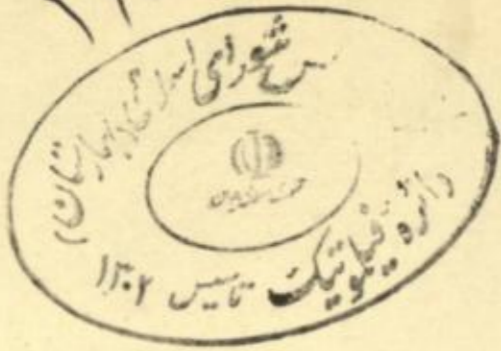 شورای اسلامی (بهارستان)
جمهوری اسلامی ایران
دائره فیلوتیک تاسیس ۱۳۰۲